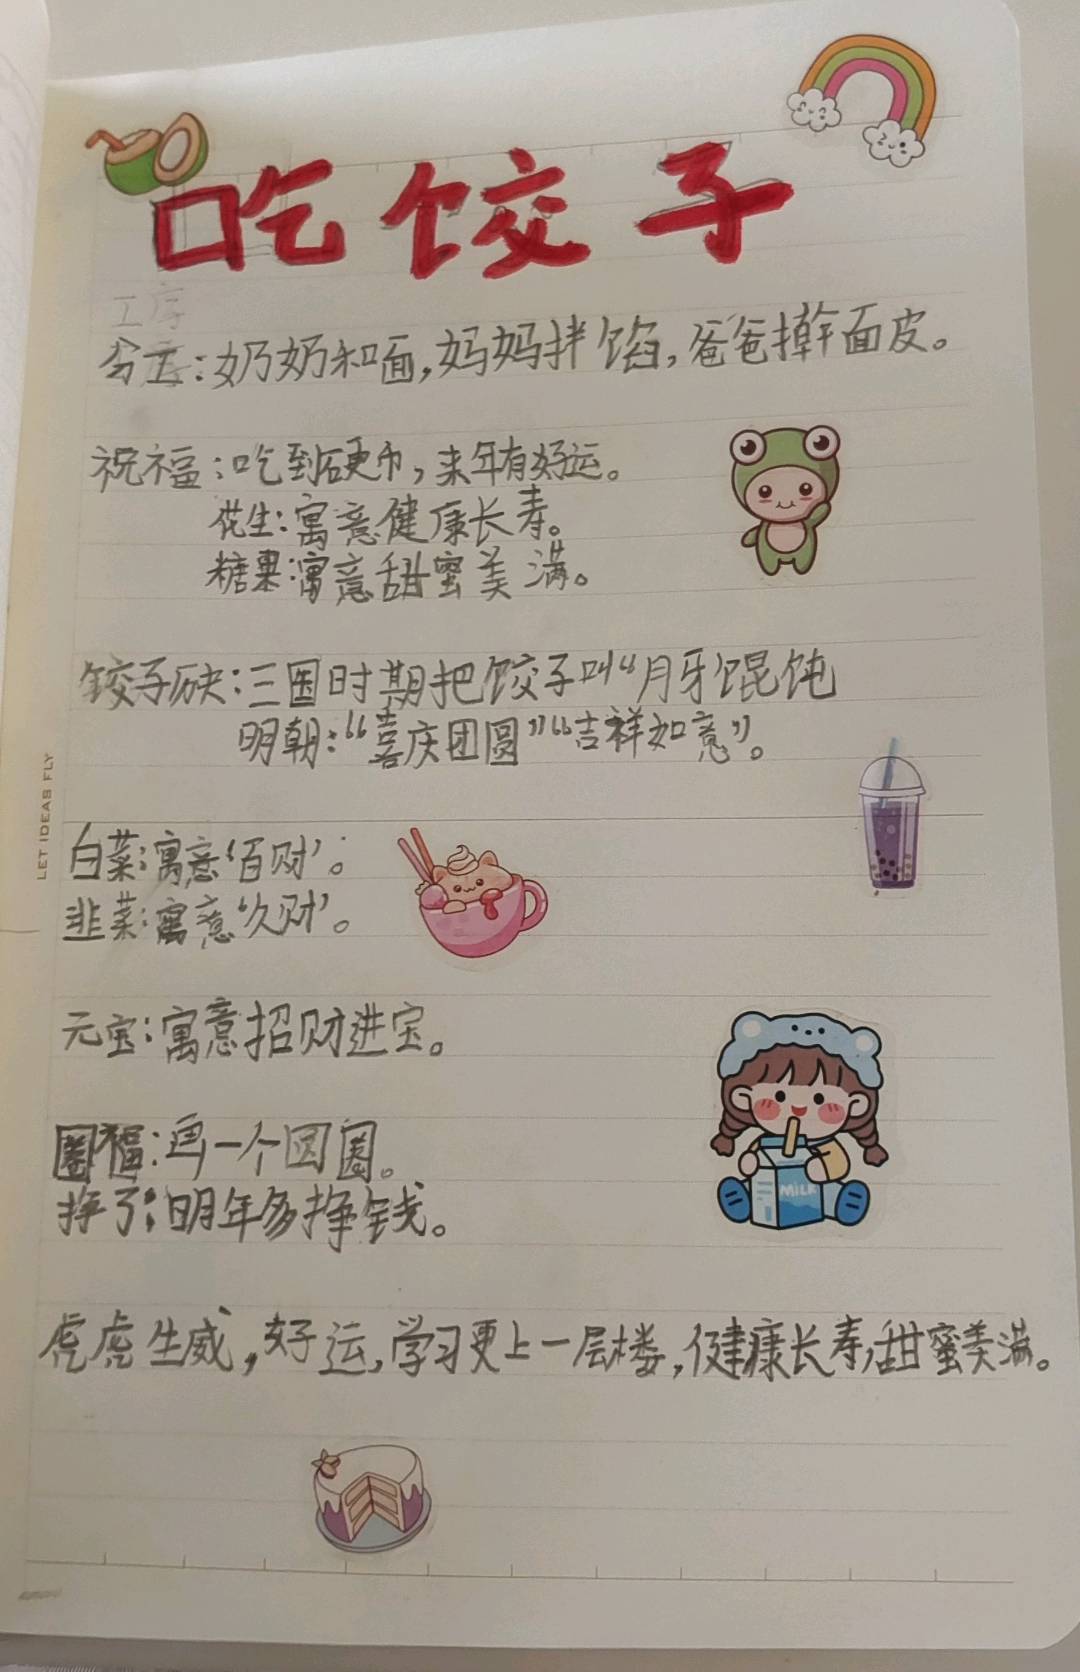 吃饺子
工序
分工：奶奶和面，妈妈拌馅，爸爸擀面皮。
祝福：吃到硬币，来年有好运。
花生：寓意健康长寿。
糖果：寓意甜蜜美满。
饺子历史：三国时期把饺子叫“月牙馄饨
明朝：“喜庆团圆”“吉祥如意”。
白菜：寓意‘百财’。
韭菜：寓意‘久财’。
元宝：寓意招财进宝。
圈福：画一个圆圈。
挣了：明年多挣钱。
虎虎生威，好运，学习更上一层楼，健康长寿，甜蜜美满。
LET IDEAS FLY
MILK